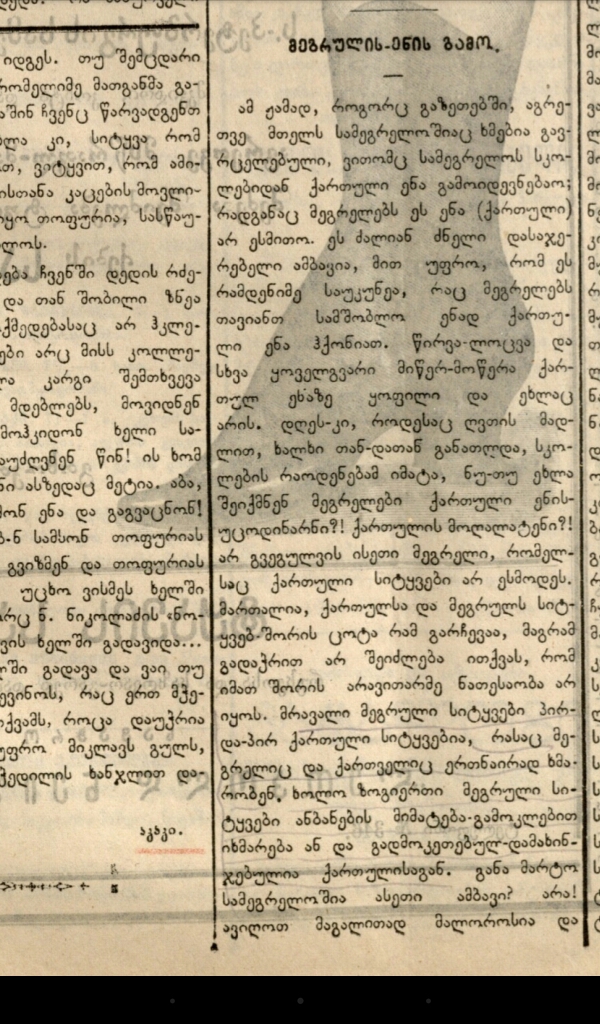 იდგეს. თუ შემცდარი
რომელიმე მათგანმა გა-
აშინ ჩვენც წარვადგენთ
ბლა კი, სიტყვა რომ
თ, ვიტყვით, რომ ამი-
ისთანა კაცების მოვლი-
იყო თოფურია, სასწაუ-
ლოს.
ღება ჩვენში დედის რძე-
და თან შობილი ზნეა
ქმედებასაც არ ჰკლე-
ები არც მისს კოლლე-
ლა კარგი შემთხვევა
მდებლებს, მოვიდნენ
მოჰკიდონ ხელი სა-
აუძღვნენ წინ! ის ხომ
ნი ასზედაც მეტია. აბა,
მონ ენა და გაგვაცნონ!
ბ-ნ სამსონ თოფურიას
გვიზმენ და თოფურიას
უცხო ვისმეს ხელში
არც ნ. ნიკოლაძის «ნო-
ვის ხელში გადავიდა...
ლში გადავა და ვაი თუ
ევინოს, რაც ერთ მჭე-
ქვამს, როცა დაუჭრია
უფრო მიკლავს გულს,
ჭედილის ხანჯლით და-
აკაკი.
მეგრულის-ენის გამო.
ამ ჟამად, როგორც გაზეთებში, აგრე-
თვე მთელს სამეგრელოშიაც ხმებია გავ-
რცელებული, ვითომც სამეგრელოს სკო-
ლებიდან ქართული ენა გამოიდევნებაო;
რადგანაც მეგრელებს ეს ენა (ქართული)
არ ესმითო. ეს ძალიან ძნელი დასაჯე-
რებელი ამბავია, მით უფრო, რომ ეს
რამდენიმე საუკუნეა, რაც მეგრელებს
თავიანთ სამშობლო ენად ქართუ-
ლი ენა ჰქონიათ. წირვა-ლოცვა და
სხვა ყოველგვარი მიწერ-მოწერა ქარ-
თულ ენაზე ყოფილი და ეხლაც
არის. დღეს-კი, როდესაც ღვთის მად-
ლით, ხალხი თან-დათან განათლდა, სკო-
ლების რაოდენებამ იმატა, ნუ-თუ ეხლა
შეიქმნენ მეგრელები ქართული ენის-
უცოდინარნი?! ქართულის მოღალატენი?!
არ გვეგულვის ისეთი მეგრელი, რომელ-
საც ქართული სიტყვები არ ესმოდეს.
მართალია, ქართულსა და მეგრულს სიტ-
ყვებ-შორის ცოტა რამ გარჩევაა, მაგრამ
გადაჭრით არ შეიძლება ითქვას, რომ
იმათ შორის არავითარმე ნათესაობა არ
იყოს. მრავალი მეგრული სიტყვები პირ-
და-პირ ქართული სიტყვებია, რასაც მე-
გრელიც და ქართველიც ერთნაირად ხმა-
რობენ, ხოლო ზოგიერთი მეგრული სი-
ტყვები ანბანების მიმატება-გამოკლებით
იხმარება ან და გადმოკეთებულ-დამახინ-
ჯებულია ქართულისაგან. განა მარტო
სამეგრელოშია ასეთი ამბავი? არა!
ავიღოთ მაგალითად მალოროსია და